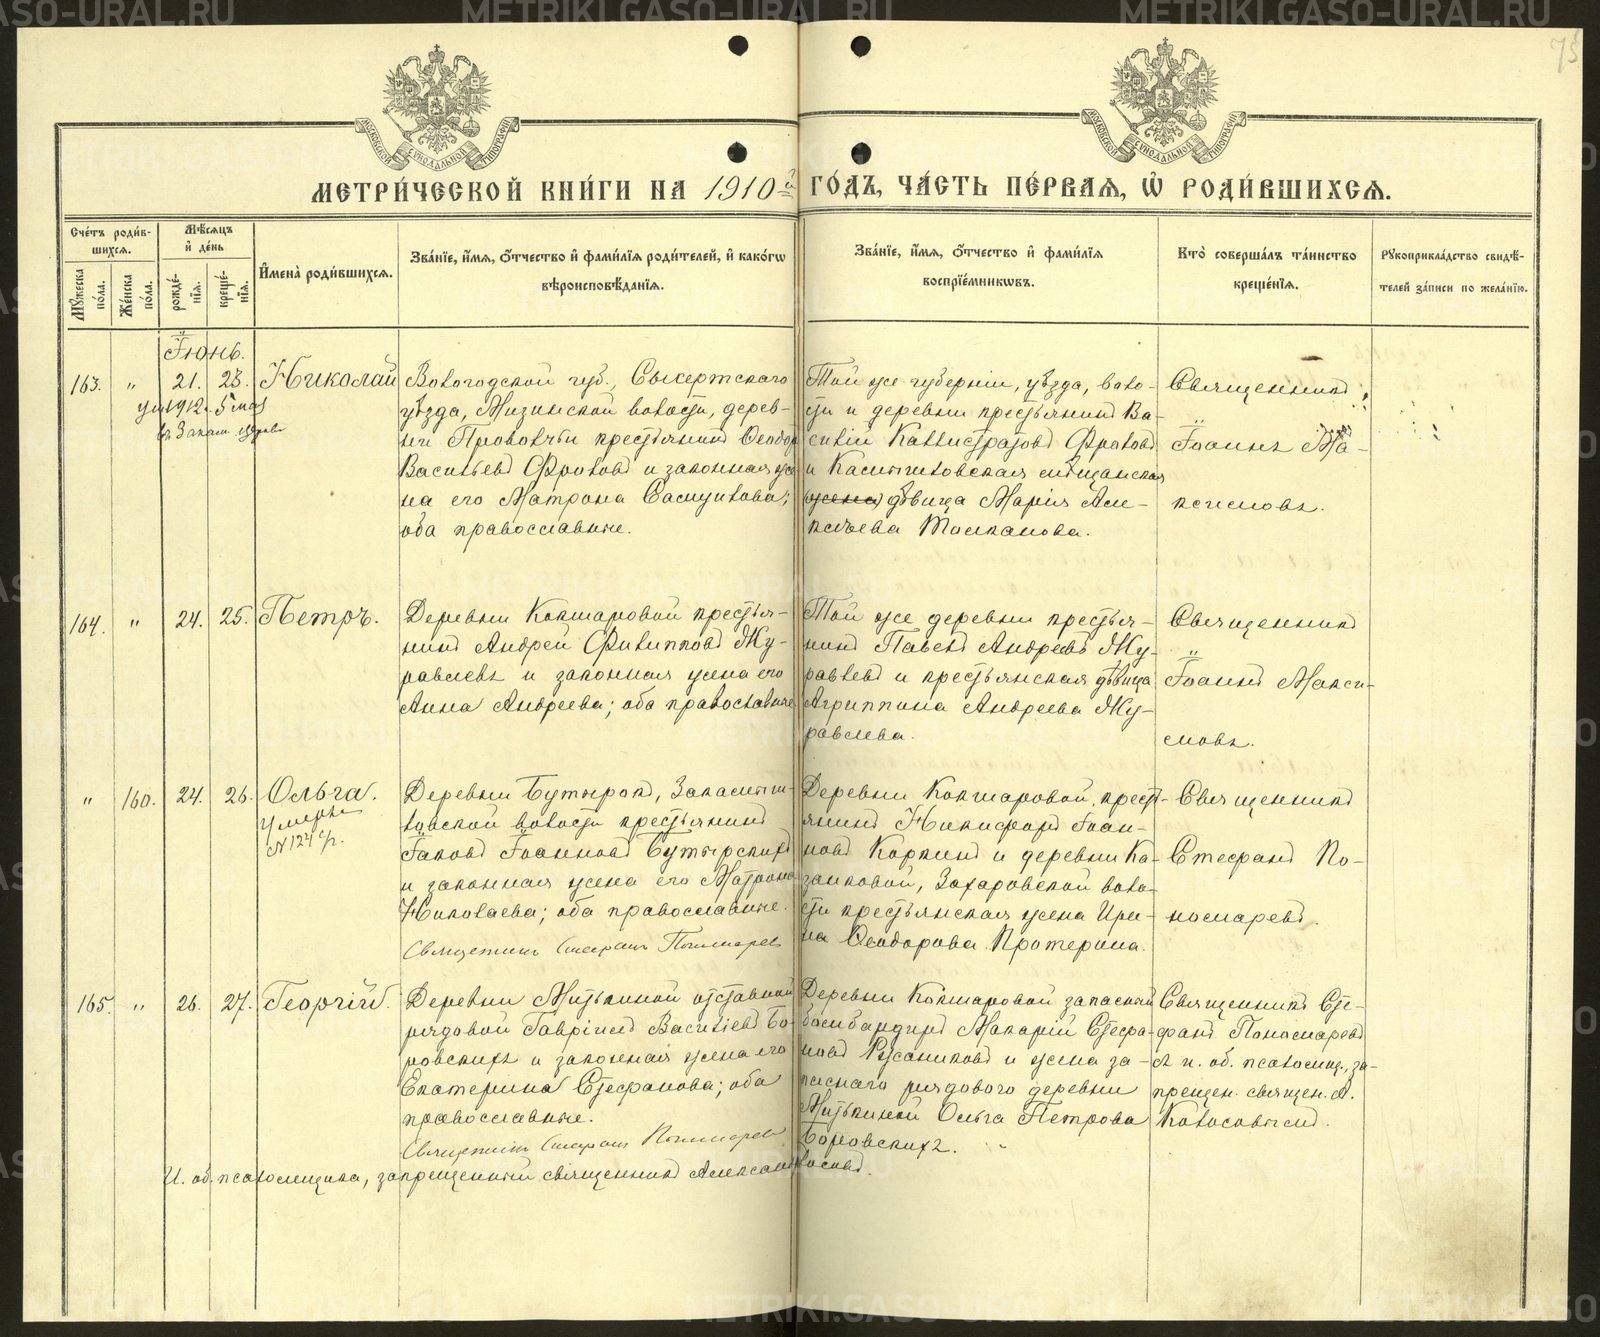 75
МОСКОВСКОЙ СУНОДАЛЬНОЙ ТИПОГРАФІИ
МОСКОВСКОЙ СУНОДАЛЬНОЙ ТИПОГРАФІИ
МЕТРИ́ЧЕСКОЙ КНИ́ГИ НА 1910й ГО́ДЪ, ЧА́СТЬ ПЕ́РВАЯ, Ѡ҆ РОДИ́ВШИХСЯ.
Сче́тъ роди́в-
шихся.
Мꙋжеска по́ла.
Же́нска по́ла.
Мѣ́сяцъ
и҆ де́нь
рожде́-
нїя.
креще́-
нїя.
И҆мена̀ роди́вшихся.
Зва́нїе, и҆́мя, ѻ҆́тчество и҆ фами́лїя роди́телей, и҆ како́гѡ
вѣроисповѣ́данїя.
Зва́нїе, и҆́мя, ѻ҆́тчество и҆ фами́лїя
воспрїе́мникѡвъ.
Кто̀ соверша́лъ та́инство
креще́нїя.
Рꙋкоприкла́дство свидѣ́-
телей за́писи по жела́нїю.
Іюнь.
163. " 21. 23. Николай
ум 1912 г. 5 мая
Вологодской губ., Сысертского
уѣзда, Мизинской волости, дерев-
ни Прокопьи крестьянинъ Ѳеодоръ
Васильевъ Фроловъ и законная же-
на его Матрона Самуилова;
оба православные.
Той же губерніи, уѣзда, воло-
сти и деревни крестьянинъ Ва-
силій Каллистратовъ Фроловъ
и Камышловская мѣщанская
жена дѣвица Марія Але-
ксѣева Толкалова.
Священникъ
Іоаннъ Ма-
ксимовъ.
164. " 24. 25. Петръ.
Деревни Кокшаровой крестья-
нинъ Андрей Филипповъ Жу-
равлевъ и законная жена его
Анна Андреева; оба православные
Той же деревни крестья-
нинъ Павелъ Андреевъ Жу-
равлевъ и крестьянская дѣвица
Агриппина Андреева Жу-
равлева.
Священникъ
Іоаннъ Макси-
мовъ.
" 160. 24. 26. Ольга.
Умерла
№ 124
Деревни Бутырокъ, Закамыш-
ловской волости крестьянинъ
Іаковъ Іоанновъ Бутырскихъ
и законная жена его Матрона
Николаева; оба православные.
Священникъ Стефанъ Пономаревъ
Деревни Кокшаровой, кресть-
янинъ Никифоръ Іоан-
новъ Коркинъ и деревни Ка-
заковой, Захаровской воло-
сти крестьянская жена Ири-
на Ѳеодорова Протерина.
Священникъ
Стефанъ По-
номаревъ.
165. " 26. 27. Георгій.
Деревни Митькиной отставной
рядовой Гавріилъ Василіевъ Бо-
ровскихъ и законная жена его
Екатерина Стефанова; оба
православные.
Священникъ Стефанъ Пономаревъ
Деревни Кокшаровой запасный
бомбардиръ Макарій Стефа-
новъ Русаниковъ и жена за-
паснаго рядового деревни
Митькиной Ольга Петрова
Боровскихъ.
Священникъ Сте-
фанъ Пономаревъ
и и. об. псаломщ., за-
прещен. священ. А.
Колосовымъ.
И. об. псаломщика, запрещенный священникъ Александръ Колосовъ.
METRIKI.GASO-URAL.RU